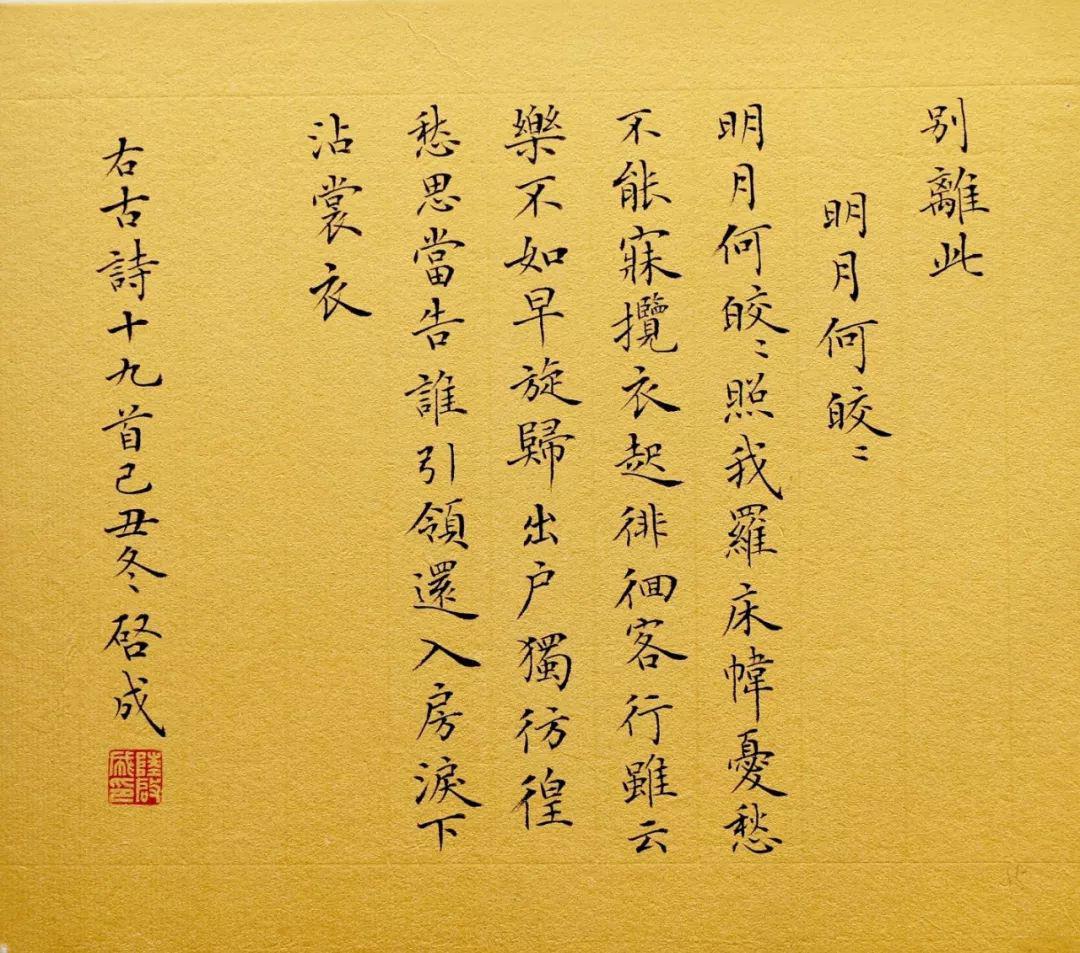 別離此
明月何皎〻
明月何皎〻照我羅床幃憂愁
不能寐攬衣起徘徊客行雖云
樂不如早旋歸出户獨彷徨
愁思當告誰引領還入房淚下
沾裳衣
右古詩十九首己丑冬〻啓成
陸啟成印